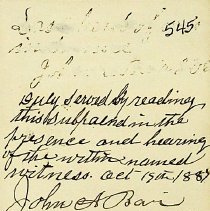 545
duly served by reading
this subpaena in the
presence and hearing
of the within named
witness. Oct 19th 1887
John A Bair